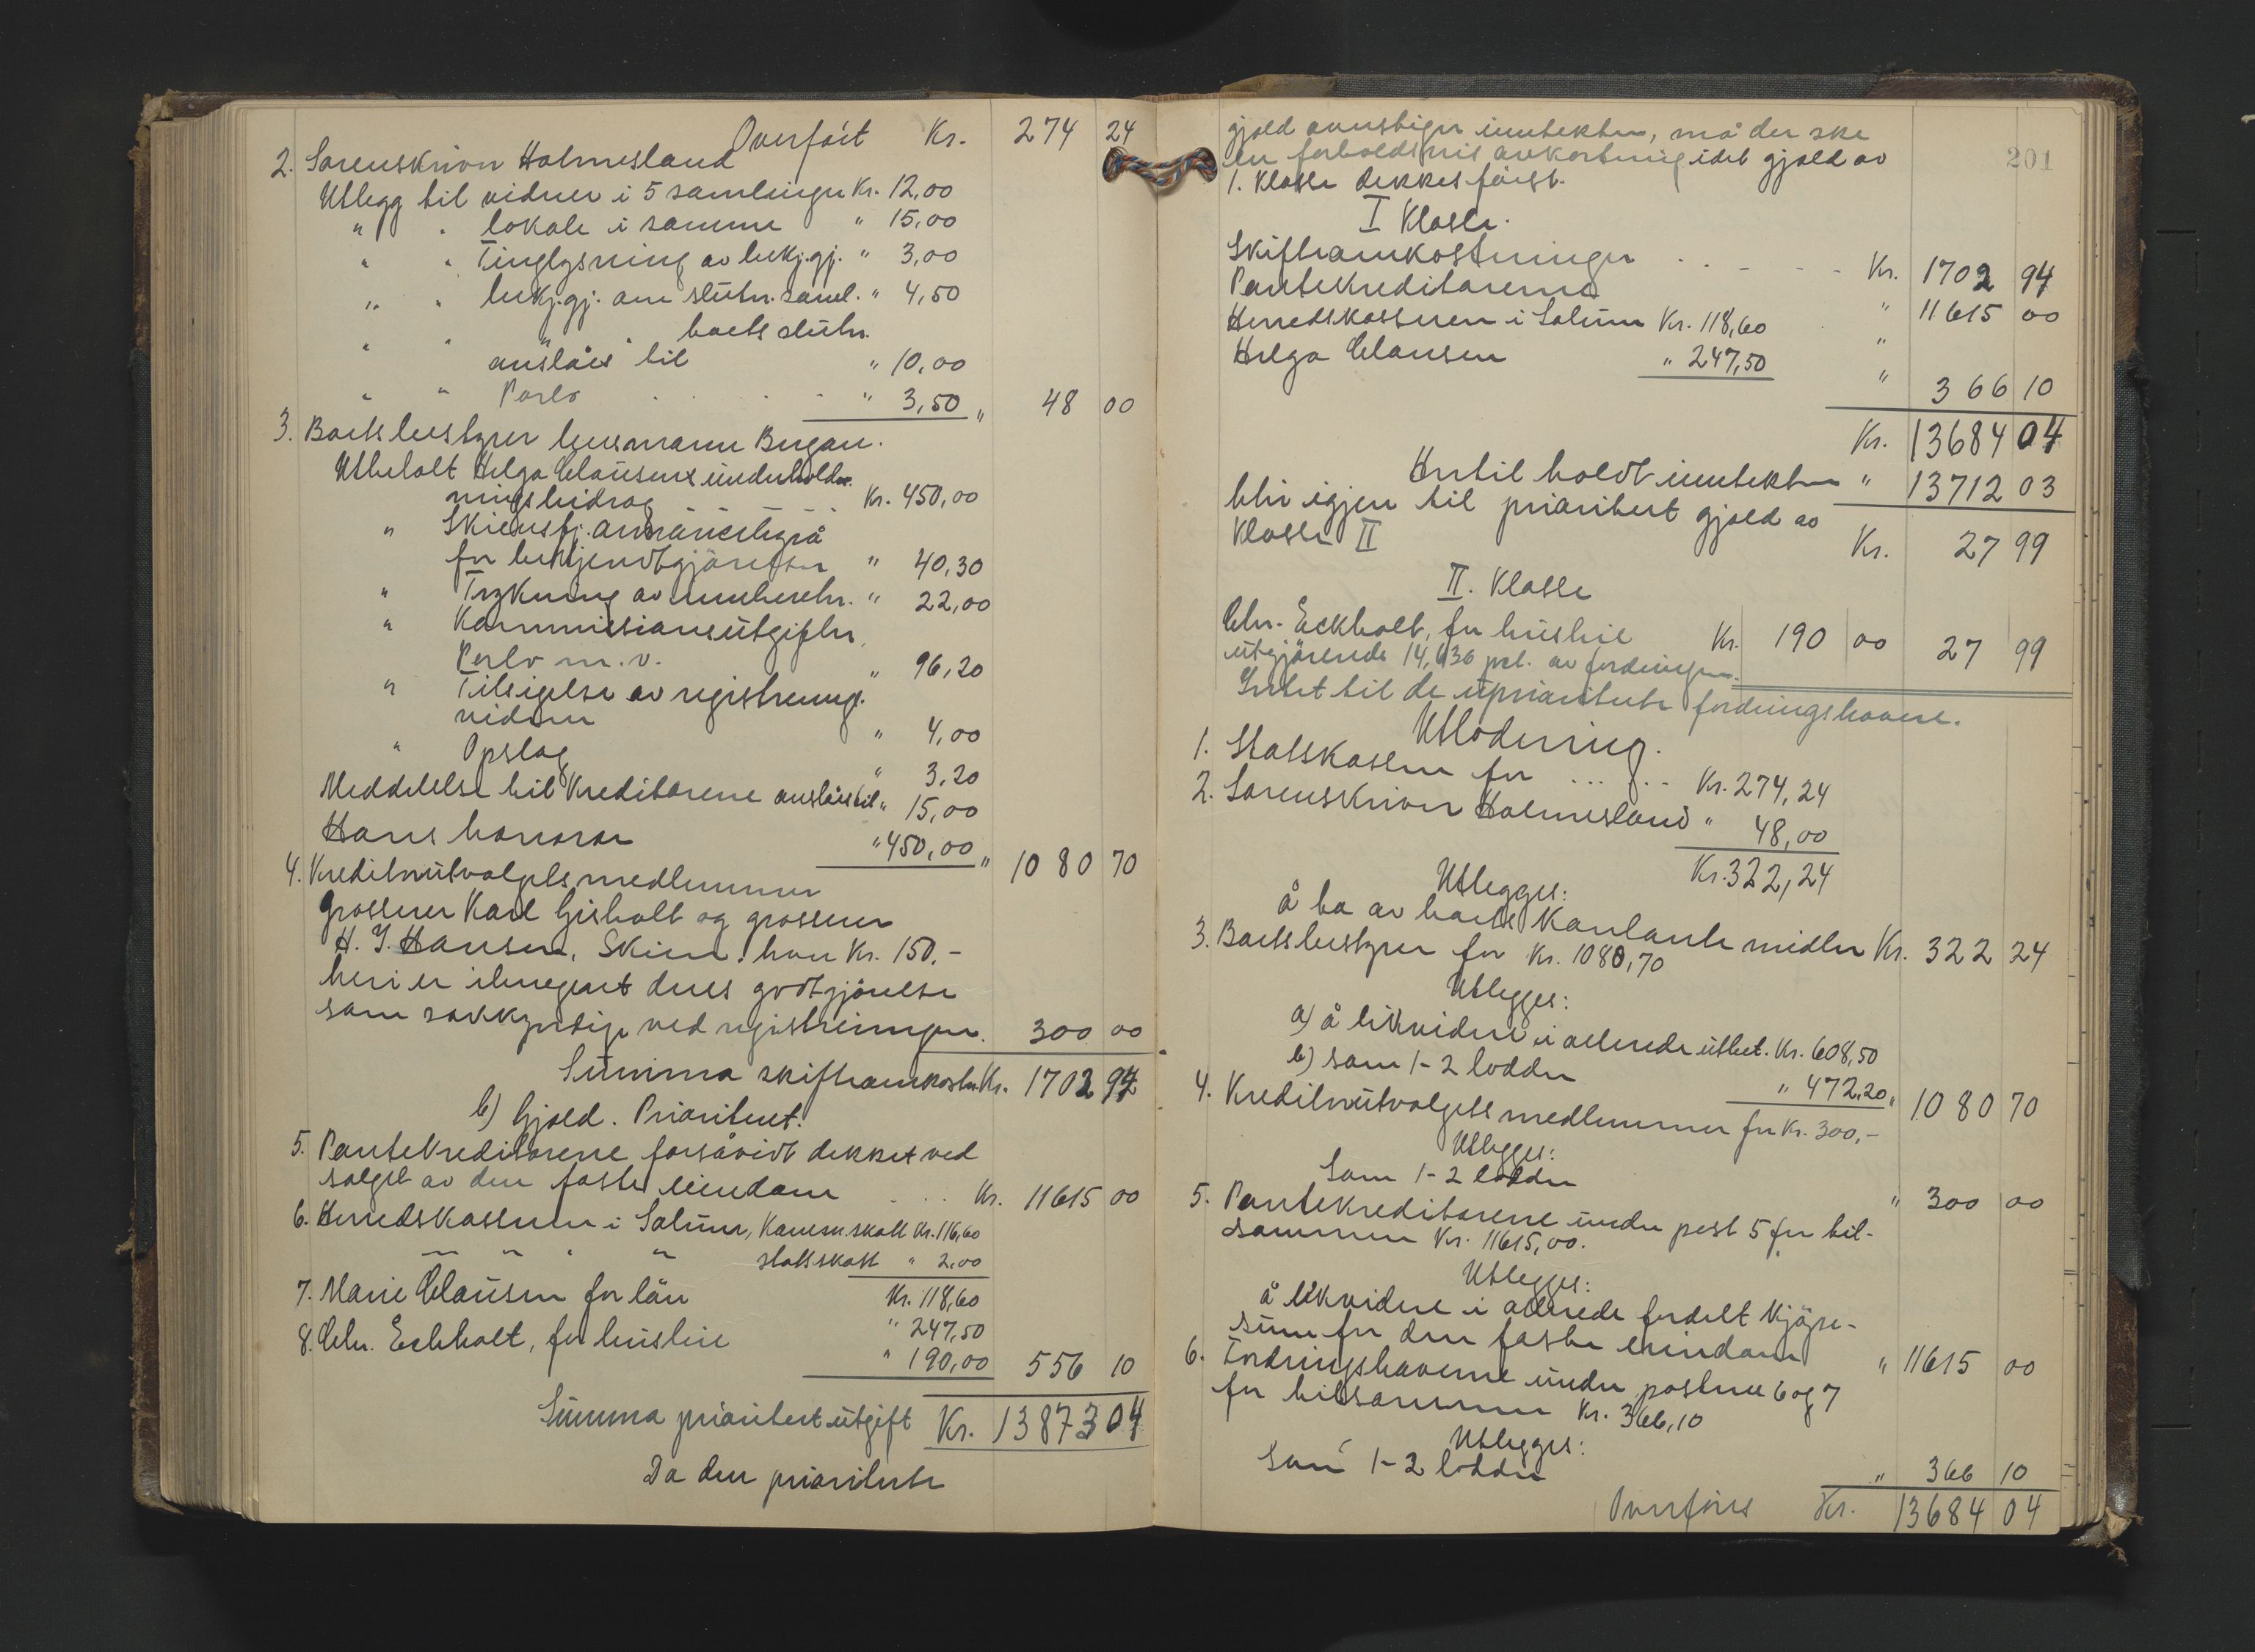 Overført Kr. 274 24
2. Sorenskriver Holmesland
Utlegg til vidner i 5 samlinger Kr. 12,00
" " lokale i samme " 15,00
" " Tinglysning av bekj.gj. " 3,00
" " bekj.gj. om slutn.saml. " 4,50
" " " " boets slutn.
anslåes til " 10,00
" " Porto " 3,50 " 48 00
3. Boets bestyrer lensmann Bergan.
Utbetalt Helga Clausens underhold-
ningsbidrag Kr. 450,00
" Skiensfj. annoncebyrå
for bekjendtgjørelser " 40,30
" Trykning av innberetn. " 22,00
" Kommissionsutgifter,
Porto m.v. " 96,20
" Tilsigelse av registrering.
vidner " 4,00
" Opslag " 3,20
Meddelelse til Kreditorene anslåes til " 15,00
Hans honorar " 450,00 " 1080 70
4. Kreditorutvalgets medlemmer
grosserer Karl Gisholt og grosserer
H. J. Hansen, Skien, hver Kr. 150.-
heri er iberegnet deres godtgjørelse
som sakkyndige ved registreringen. 300 00
Summa skifteomkostn. Kr. 1702 94
b) Gjeld. Prioritert.
5. Pantekreditorene forsåvidt dekket ved
salget av den faste eiendom . . . Kr. 11615 00
6. Herredskasseren i Solum, Komm.skatt Kr. 116,60
— " " " statsskatt " 2,00
Kr. 118,60
7. Marie Clausen for lån " 247,50
8. Chr. Eckholt, for husleie " 190,00 556 10
Summa prioritert utgift Kr. 13873 04
Da den prioriterte
201
gjeld overstiger inntekten, må der ske
en forholdsvis avkortning idet gjeld av
1. Klasse dekkes først.
I Klasse.
Skifteomkostninger . . - - - Kr. 1702 94
Pantekreditorene " 11615 00
Herredskasseren i Solum Kr. 118,60 "
Helga Clausen " 247,50 " 366 10
Kr. 13684 04
Hertil holdt inntekten " 13712 03
blir igjen til prioritert gjeld av
Klasse II Kr. 27 99
II. Klasse
Chr. Eckholt, for husleie Kr. 190 00 27 99
utgjørende 14,636 pct. av fordringen.
Intet til de uprioriterte fordringshavere.
Utlodning.
1. Statskassen for ... . . - Kr. 274,24
2. Sorenskriver Holmesland " 48,00
Kr. 322,24
Utlegges:
å ta av boets Kontante midler Kr. 322 24
3. Boets bestyrer for Kr. 1080,70
Utlegges:
a) å likvidere i allerede utbet. Kr. 608,50
b) som 1-2 lodder " 472,20 " 1080 70
4. Kreditorutvalgets medlemmer for Kr. 300,-
Utlegges:
Som 1-2 lodder " 300 00
5. Pantekreditorene under post 5 for til-
sammen Kr. 11615,00.
Utlegges:
å likvidere i allerede fordelt Kjøpe-
sum for den faste eiendom " 11615 00
6. Fordringshaverne under postene 6 og 7
for tilsammen Kr. 366,10
Utlegges:
Som 1-2 lodder " 366 10
Overføres Kr. 13684 04